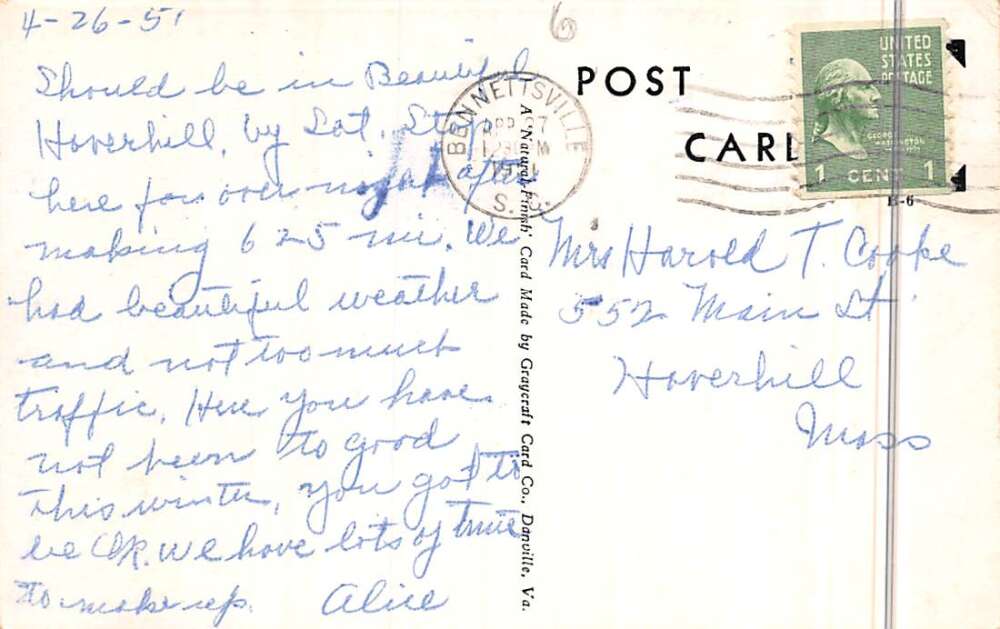 4-26-51
Should be in Beautiful
Haverhill, by Sat. Stop
here for over night after
making 625 mi. We
had beautiful weather
and not too much
traffic. Here you have
not been to good
this winter, you got to
be OK. We have lots of time
to make up. Alice
6
POST
CARD
BENNETTSVILLE
APR 27
1951
S. C.
UNITED
STATES
POSTAGE
GEORGE
WASHINGTON
1 CENT 1
E-6
A 'Natural Finish' Card Made by Graycraft Card Co., Danville, Va.
Mrs Harold T. Cooke
552 Main St
Haverhill
Mass